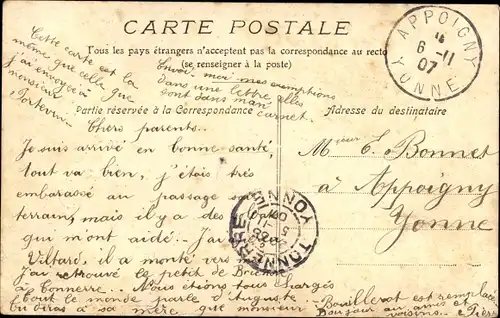 CARTE POSTALE
Tous les pays étrangers n'acceptent pas la correspondance au recto
(se renseigner à la poste)
Cette carte est la
même que celle que
j'ai envoyée à
monsieur
Envoi-moi mes exemptions
dans une lettre, elles
sont dans mon carnet.
Partie réservée à la Correspondance
Adresse du destinataire
APPOIGNY
6 -11
07
YONNE
Chers parents..
Je suis arrivé en bonne santé,
tout va bien, j'étais très
embarassé au passage
terrain, mais il y a des
qui m'ont aidé.. J'ai
Viltard, il a monté vers
J'ai retrouvé le petit de
à Tonnerre.. Nous étions tous chargés
tout le monde parle d'Auguste
tu diras à sa mère que monsieur
Bouillerot est remplacé
Bonjour au amis et
voisins.
TONNERRE
5 -11
07
YONNE
Mr E. Bonnet
à Appoigny
Yonne